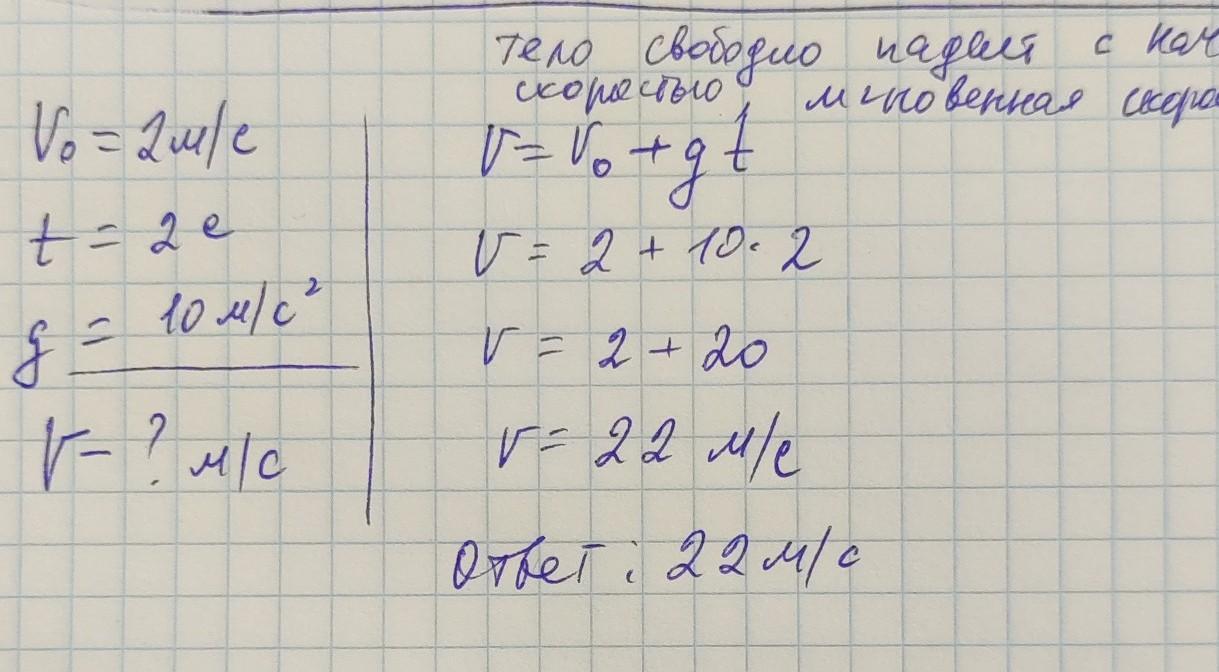 тело свободно падает с нач
скоростью мгновенная скоро
V₀ = 2 м/с
t = 2 с
g = 10 м/с²
V – ? м/с
V = V₀ + g t
V = 2 + 10 · 2
V = 2 + 20
V = 22 м/с
Ответ: 22 м/с